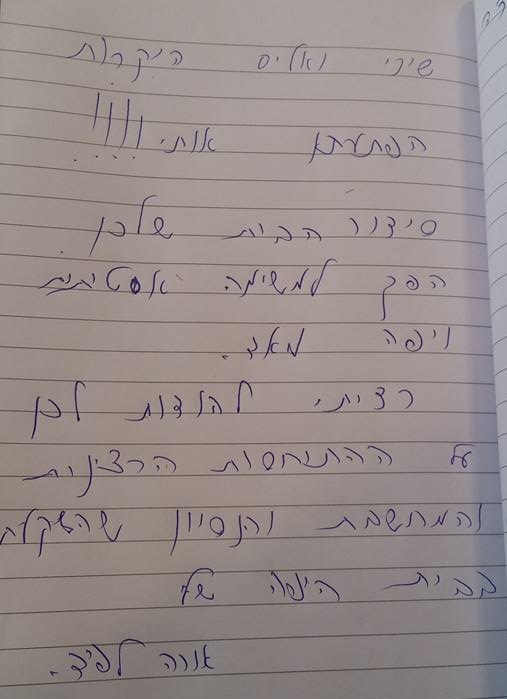 שירי ואליס היקרות
הפתעתן אותי!!!!
סידור הבית שלכן
הפך למשימה אסטיתית
ויפה מאד.
רציתי להודות לכן
על ההתיחסות הרצינית
והמחשבת והנסיון שהשקלת
בבית היפה של
אורה לפיד.